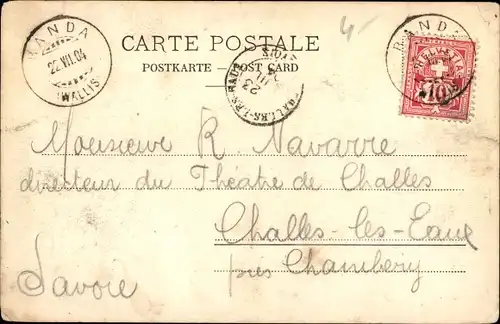 4.-
RANDA
22.VII.04
(WALLIS)
CARTE POSTALE
POSTKARTE - POST CARD
RANDA
10
CHALLES-LES-EAUX
23
Monsieur R. Navarre
directeur du Théatre de Challes
Challes-les-Eaux
près Chambéry
Savoie